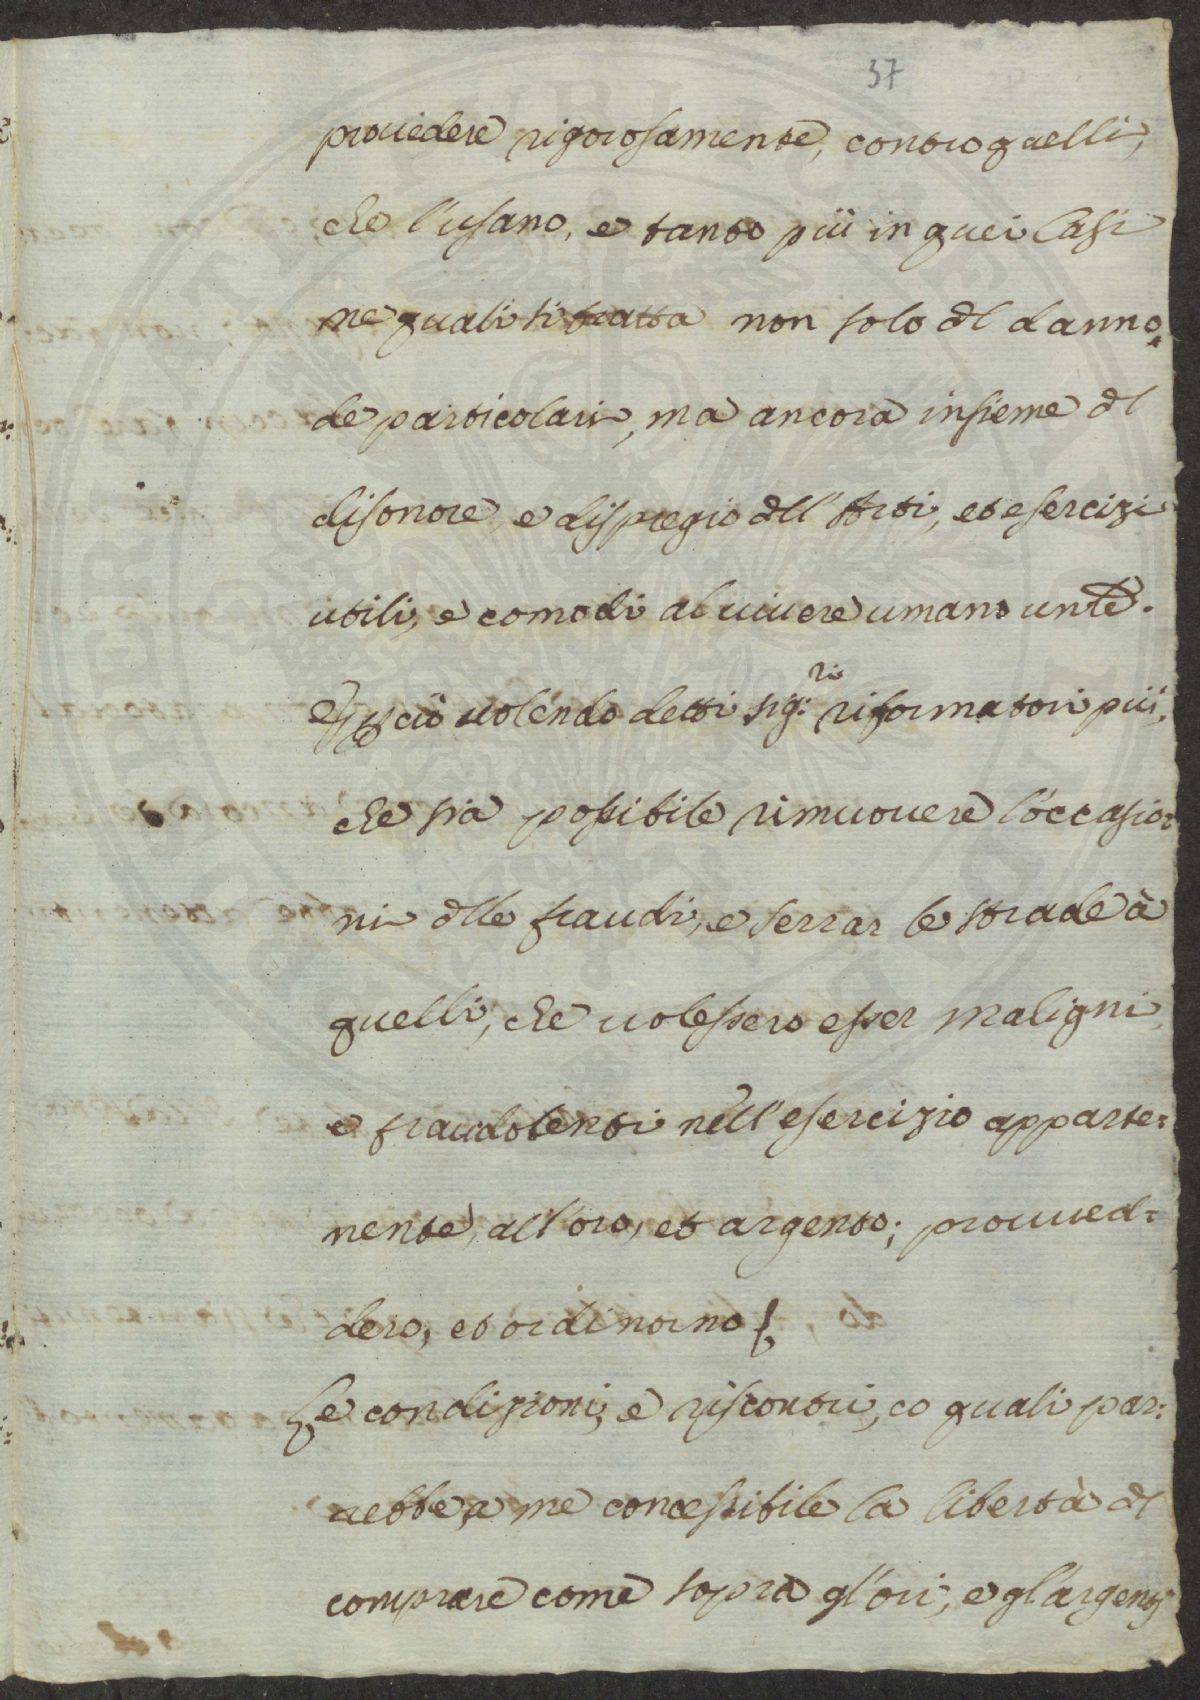 37
prouedere rigorosamente, contro quelli,
che l'usano, e tanto più in quei Casi
ne quali si tratta non solo dl danno
de particolari, ma ancora insieme dl
disonore, e dispregio dll'Arti, et esercizi
utili, e comodi al uiuere umano unte.
E ciò uolendo detti sig:ri riformatori più,
che sia possibile rimuouere l'occasio=
ni dlle fraudi, e serrar le strade à
quelli, che uolessero esser maligni
e fraudolenti nell'esercizio apparte=
nente, all'oro, et argento; prouued=
dero, et ordinorno
Le condizioni, e riscontri, co quali par=
rebbe, a me concessibile la libertà dl
comprare come sopra gl'ori, e gl'argenti